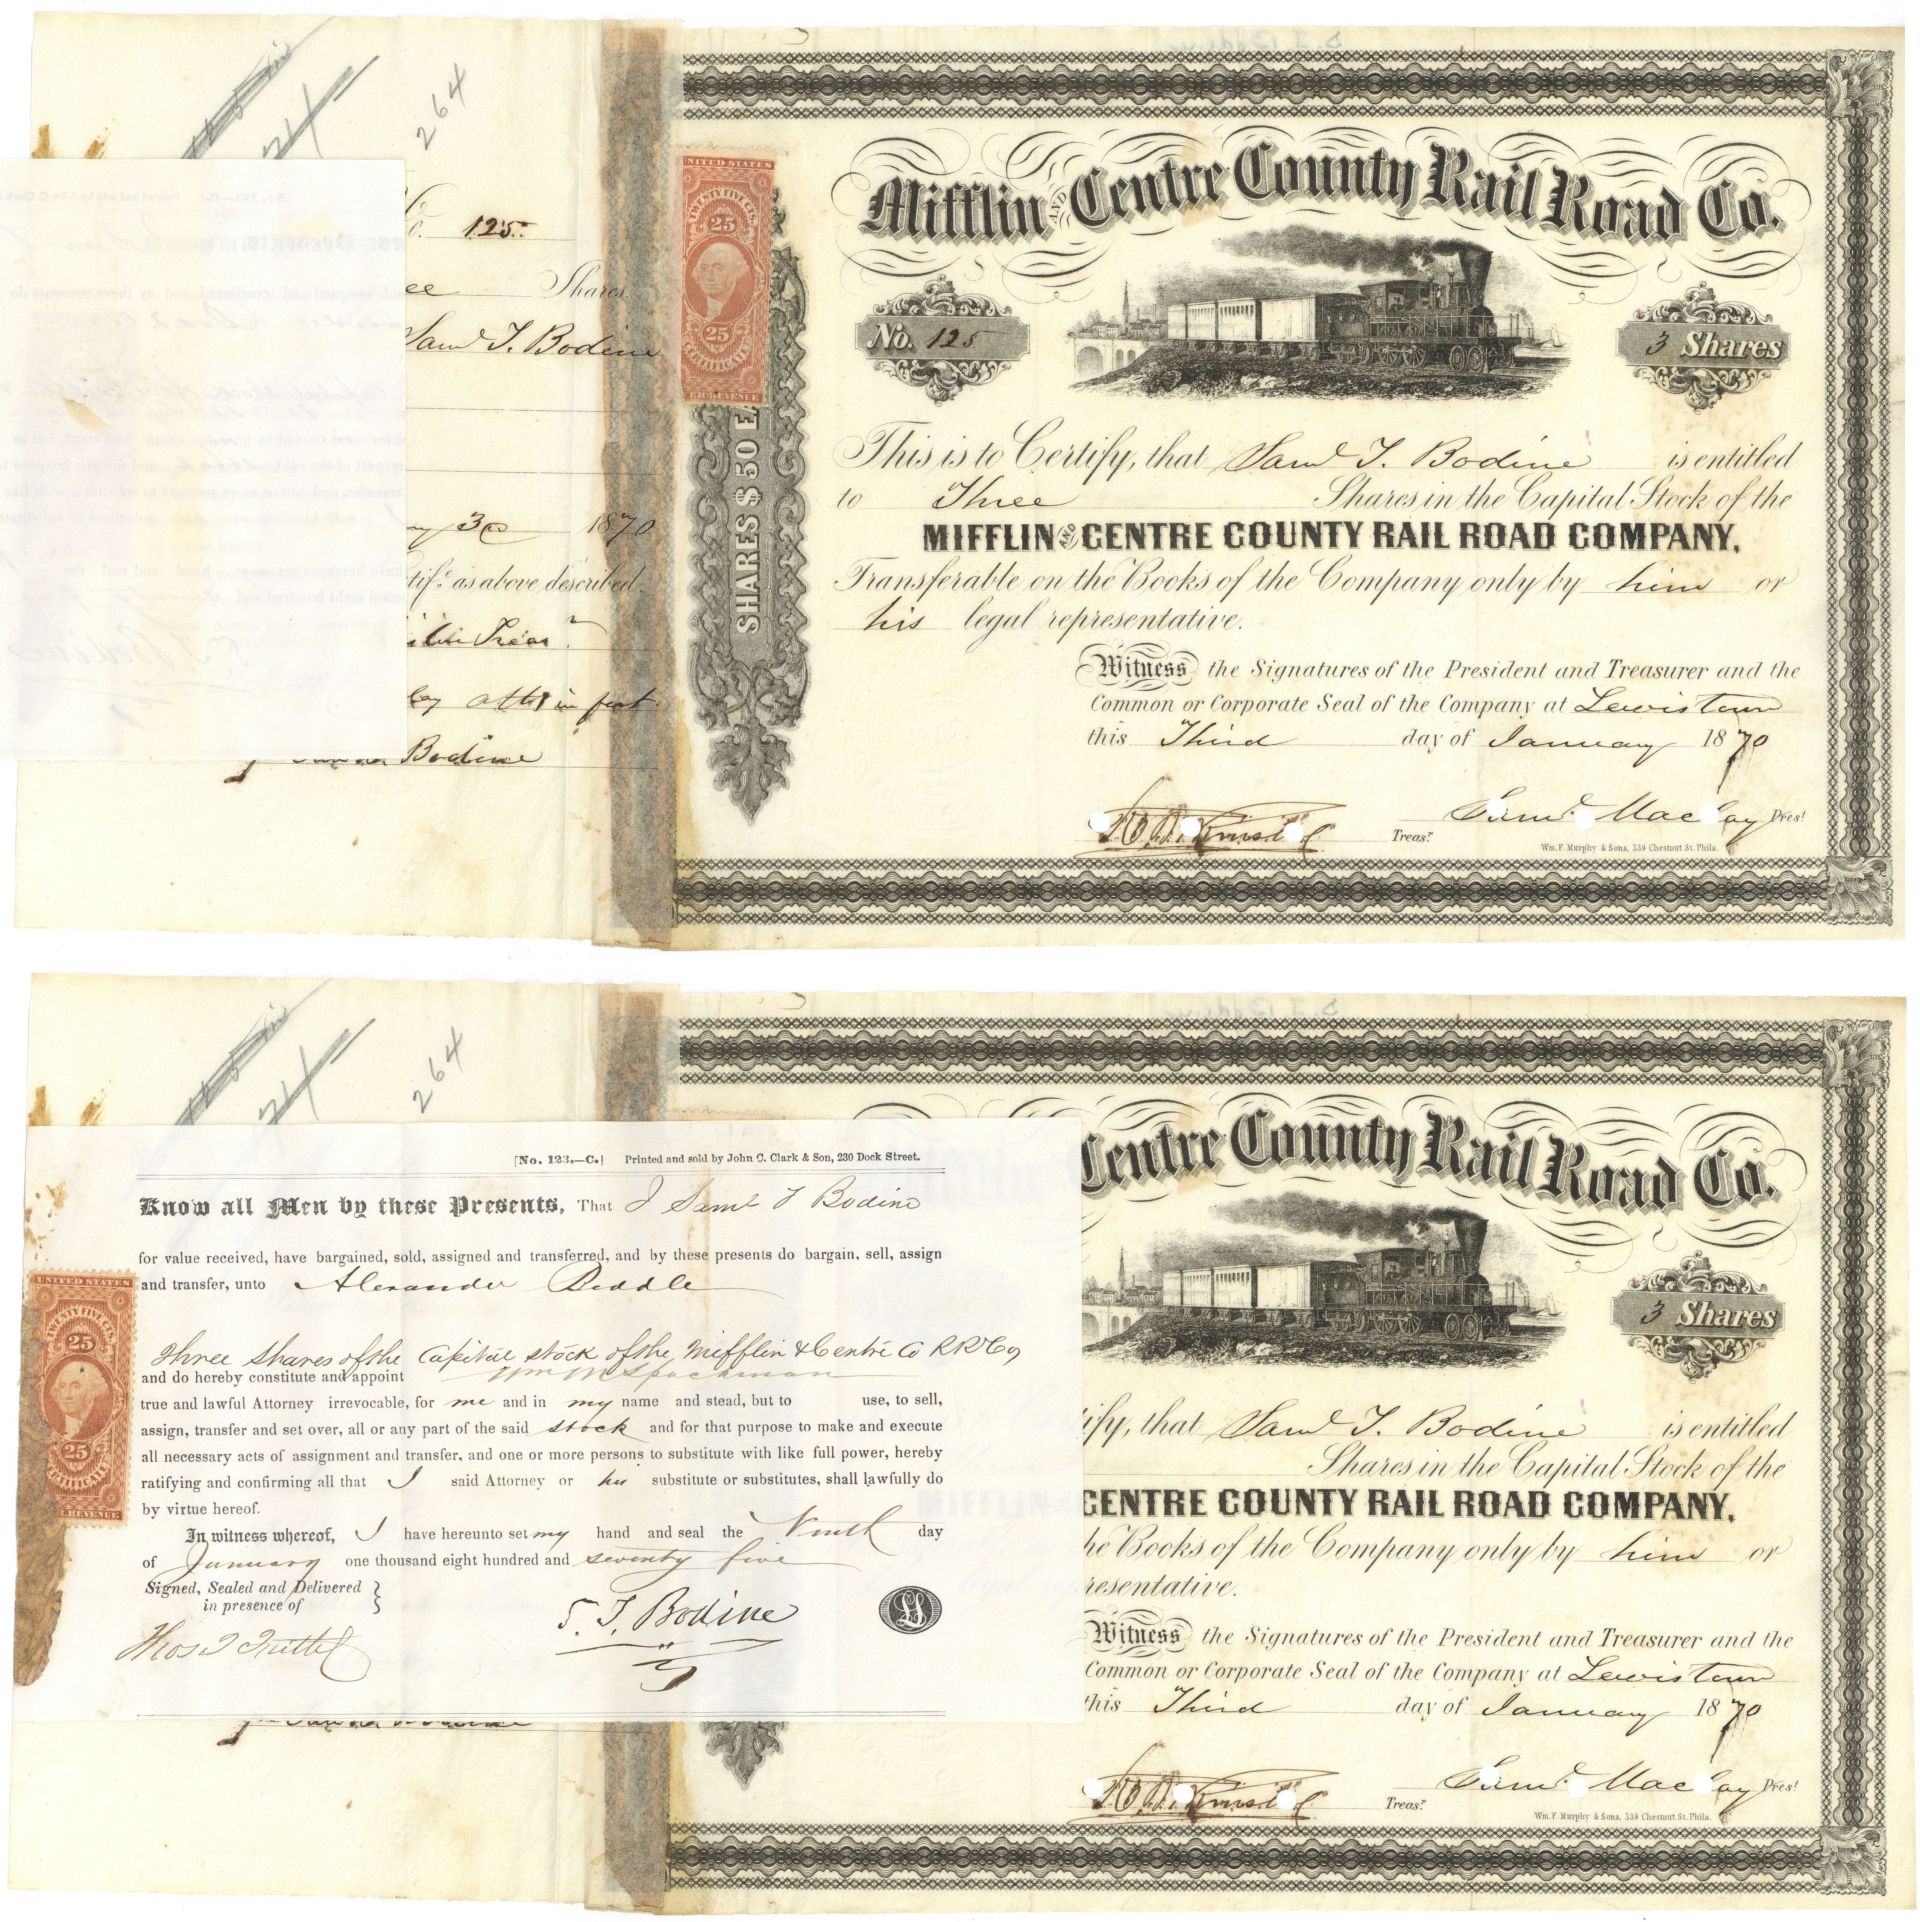 264
No. 125
ee Shares
Saml T. Bodine
3d 1870
tife as above described
Treasr
atty in fact
Bodine
UNITED STATES
TWENTY FIVE CTS.
25
25
CERTIFICATE
INT. REVENUE
SHARES $50 EA
Mifflin AND Centre County Rail Road Co.
No. 125
3 Shares
This is to Certify, that Saml T. Bodine is entitled
to Three Shares in the Capital Stock of the
MIFFLIN AND CENTRE COUNTY RAIL ROAD COMPANY,
Transferable on the Books of the Company only by him or
his legal representative.
Witness the Signatures of the President and Treasurer and the
Common or Corporate Seal of the Company at Lewistown
this Third day of January 1870
Treasr.
Saml Maclay Prest
Wm. F. Murphy & Sons, 339 Chestnut St. Phila.
264
[No. 123.—C.] Printed and sold by John C. Clark & Son, 230 Dock Street.
Know all Men by these Presents, That I Saml T Bodine
for value received, have bargained, sold, assigned and transferred, and by these presents do bargain, sell, assign
and transfer, unto Alexander Biddle
Three shares of the Capital stock of the Mifflin & Centre Co RR Co,
and do hereby constitute and appoint Wm M Spackman
true and lawful Attorney irrevocable, for me and in my name and stead, but to use, to sell,
assign, transfer and set over, all or any part of the said stock and for that purpose to make and execute
all necessary acts of assignment and transfer, and one or more persons to substitute with like full power, hereby
ratifying and confirming all that I said Attorney or his substitute or substitutes, shall lawfully do
by virtue hereof.
In witness whereof, I have hereunto set my hand and seal the Ninth day
of January one thousand eight hundred and seventy five
Signed, Sealed and Delivered
in presence of
S. T. Bodine
LS
UNITED STATES
TWENTY FIVE CTS.
25
25
CERTIFICATE
INT. REVENUE
Centre County Rail Road Co.
3 Shares
ify, that Saml T. Bodine is entitled
Shares in the Capital Stock of the
CENTRE COUNTY RAIL ROAD COMPANY,
he Books of the Company only by him or
resentative.
Witness the Signatures of the President and Treasurer and the
Common or Corporate Seal of the Company at Lewistown
this Third day of January 1870
Treasr.
Saml Maclay Prest
Wm. F. Murphy & Sons, 339 Chestnut St. Phila.